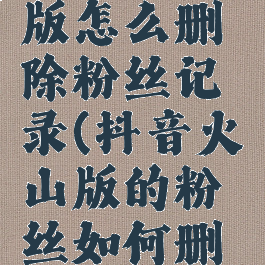 版怎么删
除粉丝记
录(抖音火
山版的粉
丝如何删